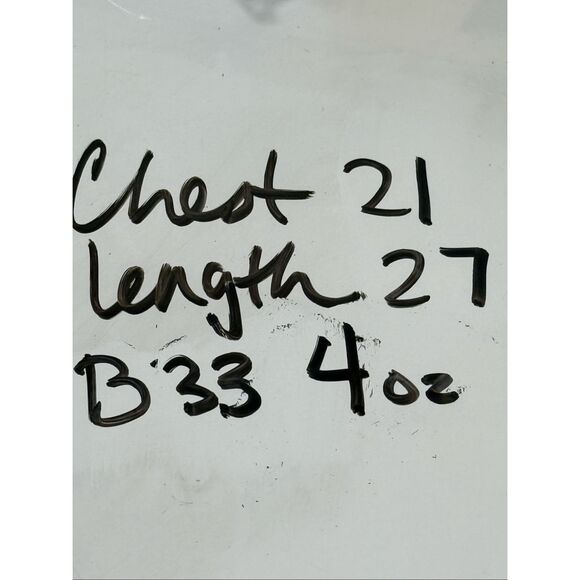 Chest 21
Length 27
B33 4oz